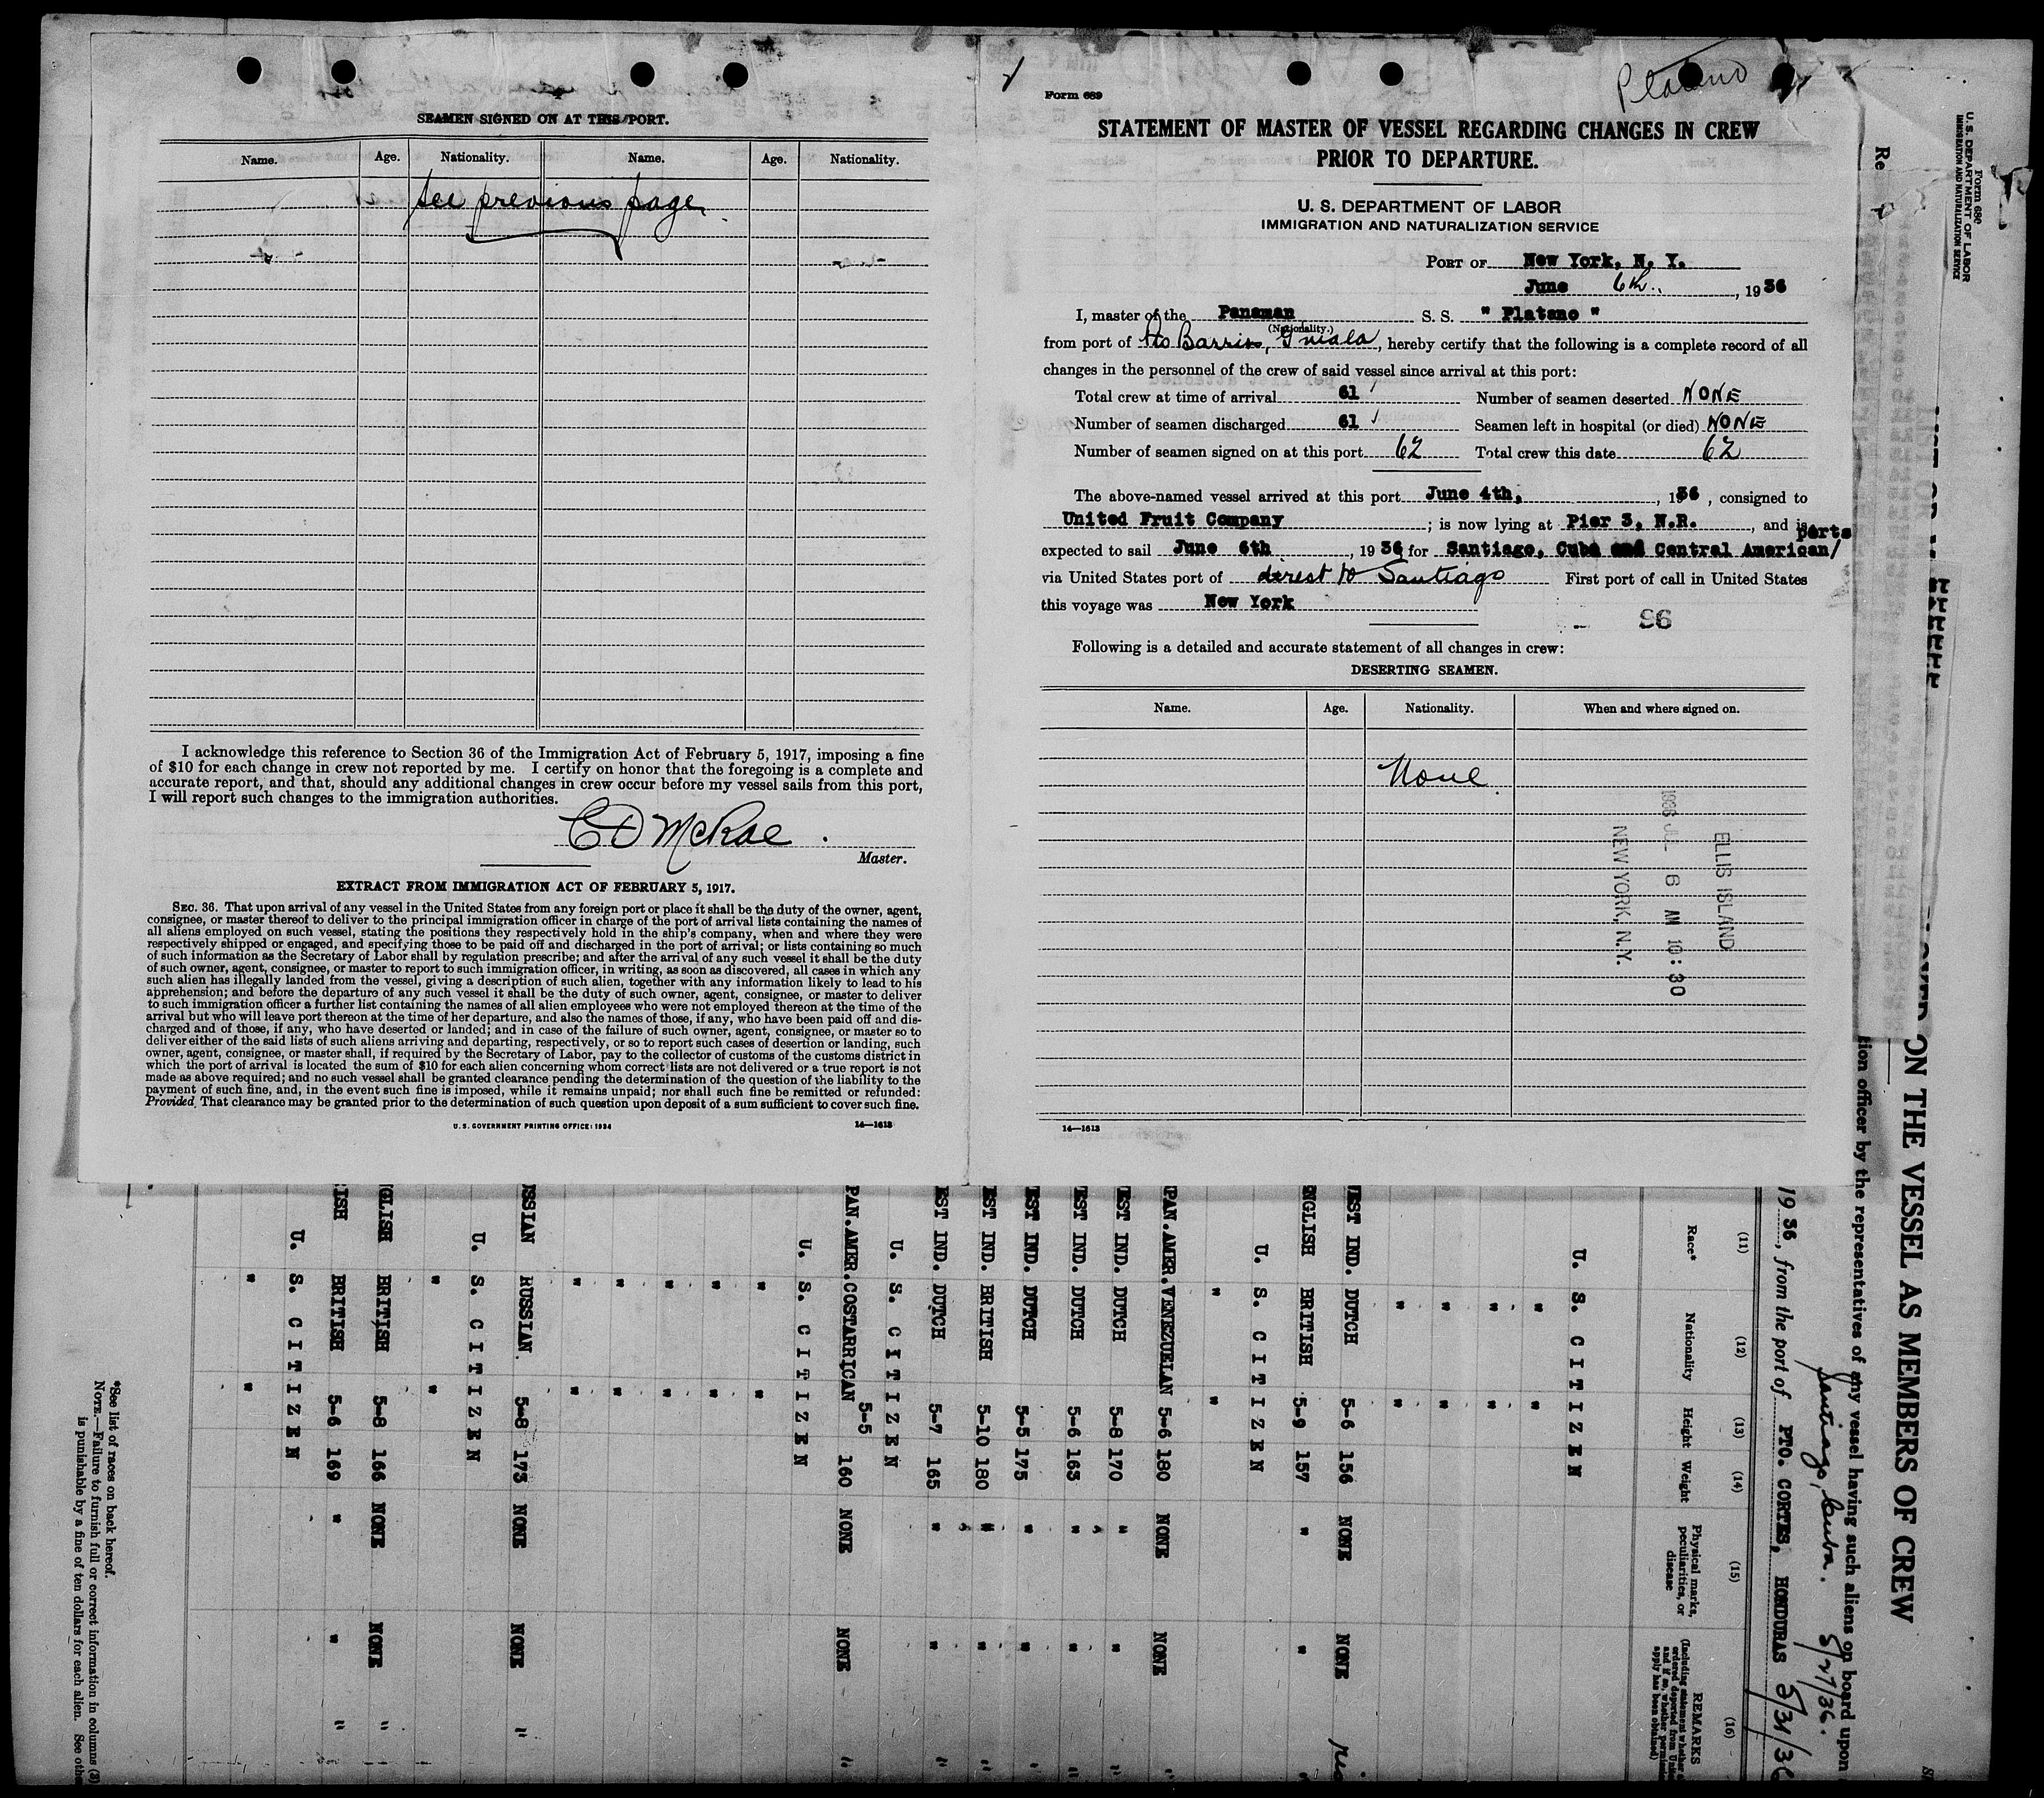 SEAMEN SIGNED ON AT THIS PORT.
Name. Age. Nationality. Name. Age. Nationality.
see previous page
I acknowledge this reference to Section 36 of the Immigration Act of February 5, 1917, imposing a fine
of $10 for each change in crew not reported by me. I certify on honor that the foregoing is a complete and
accurate report, and that, should any additional changes in crew occur before my vessel sails from this port,
I will report such changes to the immigration authorities.
C D McRae
Master.
EXTRACT FROM IMMIGRATION ACT OF FEBRUARY 5, 1917.
SEC. 36. That upon arrival of any vessel in the United States from any foreign port or place it shall be the duty of the owner, agent,
consignee, or master thereof to deliver to the principal immigration officer in charge of the port of arrival lists containing the names of
all aliens employed on such vessel, stating the positions they respectively hold in the ship's company, when and where they were
respectively shipped or engaged, and specifying those to be paid off and discharged in the port of arrival; or lists containing so much
of such information as the Secretary of Labor shall by regulation prescribe; and after the arrival of any such vessel it shall be the duty
of such owner, agent, consignee, or master to report to such immigration officer, in writing, as soon as discovered, all cases in which any
such alien has illegally landed from the vessel, giving a description of such alien, together with any information likely to lead to his
apprehension; and before the departure of any such vessel it shall be the duty of such owner, agent, consignee, or master to deliver
to such immigration officer a further list containing the names of all alien employees who were not employed thereon at the time of the
arrival but who will leave port thereon at the time of her departure, and also the names of those, if any, who have been paid off and dis-
charged and of those, if any, who have deserted or landed; and in case of the failure of such owner, agent, consignee, or master so to
deliver either of the said lists of such aliens arriving and departing, respectively, or so to report such cases of desertion or landing, such
owner, agent, consignee, or master shall, if required by the Secretary of Labor, pay to the collector of customs of the customs district in
which the port of arrival is located the sum of $10 for each alien concerning whom correct lists are not delivered or a true report is not
made as above required; and no such vessel shall be granted clearance pending the determination of the question of the liability to the
payment of such fine, and, in the event such fine is imposed, while it remains unpaid; nor shall such fine be remitted or refunded:
Provided, That clearance may be granted prior to the determination of such question upon deposit of a sum sufficient to cover such fine.
U.S. GOVERNMENT PRINTING OFFICE: 1934
14—1613
Platano
Form 689
STATEMENT OF MASTER OF VESSEL REGARDING CHANGES IN CREW
PRIOR TO DEPARTURE.
U. S. DEPARTMENT OF LABOR
IMMIGRATION AND NATURALIZATION SERVICE
PORT OF New York, N. Y.
June 6th, 1936
I, master of the Panaman S. S. " Platano "
(Nationality.)
from port of Pto Barrios, Guala, hereby certify that the following is a complete record of all
changes in the personnel of the crew of said vessel since arrival at this port:
Total crew at time of arrival 61 Number of seamen deserted NONE
Number of seamen discharged 61 Seamen left in hospital (or died) NONE
Number of seamen signed on at this port 62 Total crew this date 62
The above-named vessel arrived at this port June 4th, 1936, consigned to
United Fruit Company; is now lying at Pier 3, N.R., and is
expected to sail June 6th, 1936, for Santiago, Cuba and Central American/ports
via United States port of direct to Santiago First port of call in United States
this voyage was New York
96
Following is a detailed and accurate statement of all changes in crew:
DESERTING SEAMEN.
Name. Age. Nationality. When and where signed on.
None
ELLIS ISLAND
1936 JUL 6 AM 10:30
NEW YORK, N.Y.
14—1613
Form 680
U. S. DEPARTMENT OF LABOR
IMMIGRATION AND NATURALIZATION SERVICE
Re
ON THE VESSEL AS MEMBERS OF CREW
tion officer by the representatives of any vessel having such aliens on board upon
Santiago, Cuba. 5/27/36.
1936, from the port of PTO. CORTES, HONDURAS 5/31/36
(11) (12) (13) (14) (15) (16)
Race* Nationality Height Weight Physical marks, peculiarities, or disease REMARKS
U. S. CITIZEN
" "
" "
" "
" "
WEST IND. DUTCH 5-6 156 NONE NONE
ENGLISH BRITISH 5-9 157 " "
U. S. CITIZEN
" "
SPAN.AMER.VENEZUELAN 5-6 180 NONE NONE "
WEST IND. DUTCH 5-8 170 " " "
WEST IND. DUTCH 5-6 163 " " "
WEST IND. DUTCH 5-5 175 " "
WEST IND. BRITISH 5-10 180 " " "
WEST IND. DUTCH 5-7 165 " " "
U. S. CITIZEN
SPAN.AMER.COSTARRICAN 5-5 160 NONE NONE "
U. S. CITIZEN
" "
" "
" "
" "
" "
RUSSIAN RUSSIAN. 5-8 173 NONE NONE "
U. S. CITIZEN
" "
ENGLISH BRITISH 5-8 166 NONE NONE "
ISH BRITISH 5-6 169 " " "
U. S. CITIZEN
" "
*See list of races on back hereof.
NOTE.—Failure to furnish full or correct information in columns (3)
is punishable by a fine of ten dollars for each alien. See othe